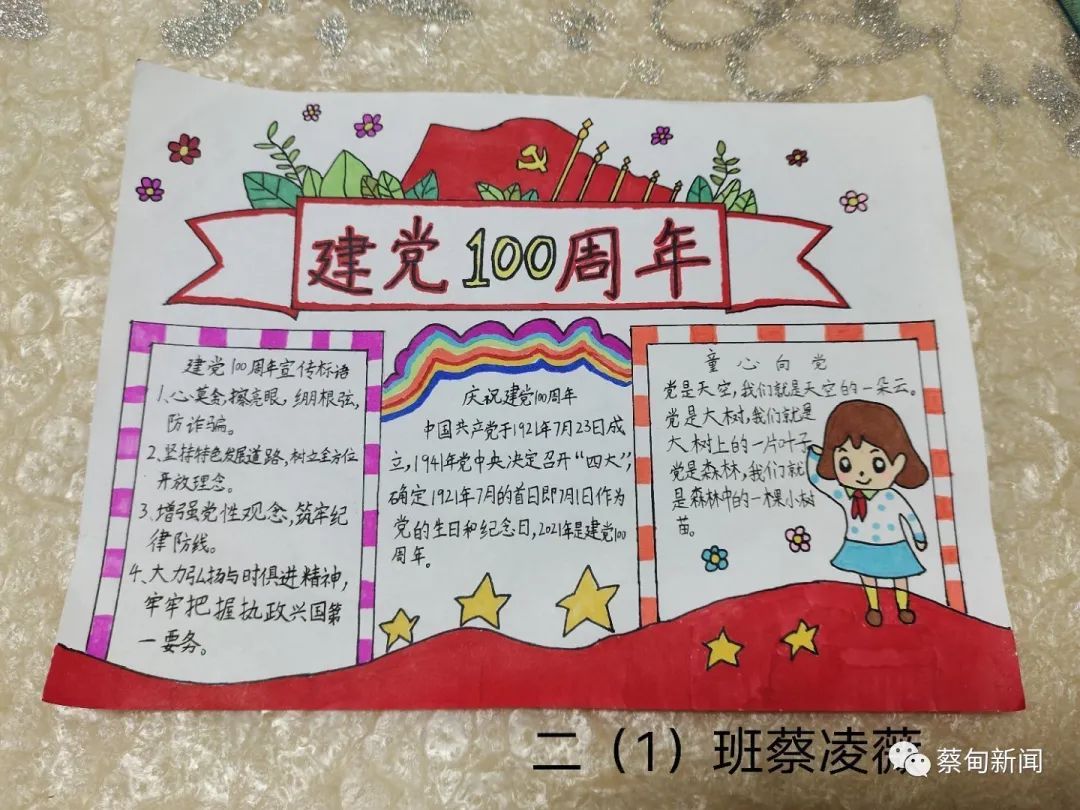 建党100周年
建党100周年宣传标语
1、心莫贪,擦亮眼,绷根弦,
防诈骗。
2、坚持特色发展道路,树立全方位
开放理念。
3、增强党性观念,筑牢纪
律防线。
4、大力弘扬与时俱进精神,
牢牢把握执政兴国第
一要务。
庆祝建党100周年
中国共产党于1921年7月23日成
立,1941年党中央决定召开“四大”,
确定1921年7月的首日即7月1日作为
党的生日和纪念日,2021年是建党100
周年。
童心向党
党是天空,我们就是天空的一朵云。
党是大树,我们就是
大树上的一片叶子
党是森林,我们就
是森林中的一棵小树
苗。
二（1）班蔡凌薇
蔡甸新闻